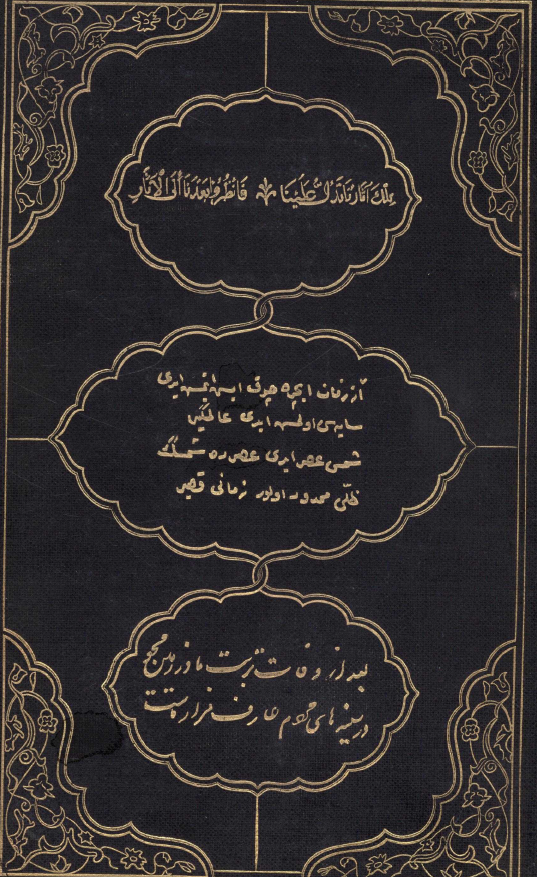 تلك آثارنا تدل علينا فانظروا بعدنا الى الآثار
آز زمان ايچره چوق ايش ايتمش ايدى
سايه‌سى اولمش ايدى عالمگير
شمس عصر ايدى عصرده شمسڭ
ظلّى ممدود اولور زمانى قصير
بعد از وفات تربت ما در زمين مجو
در سينه‌هاى مردم عارف مزار ماست